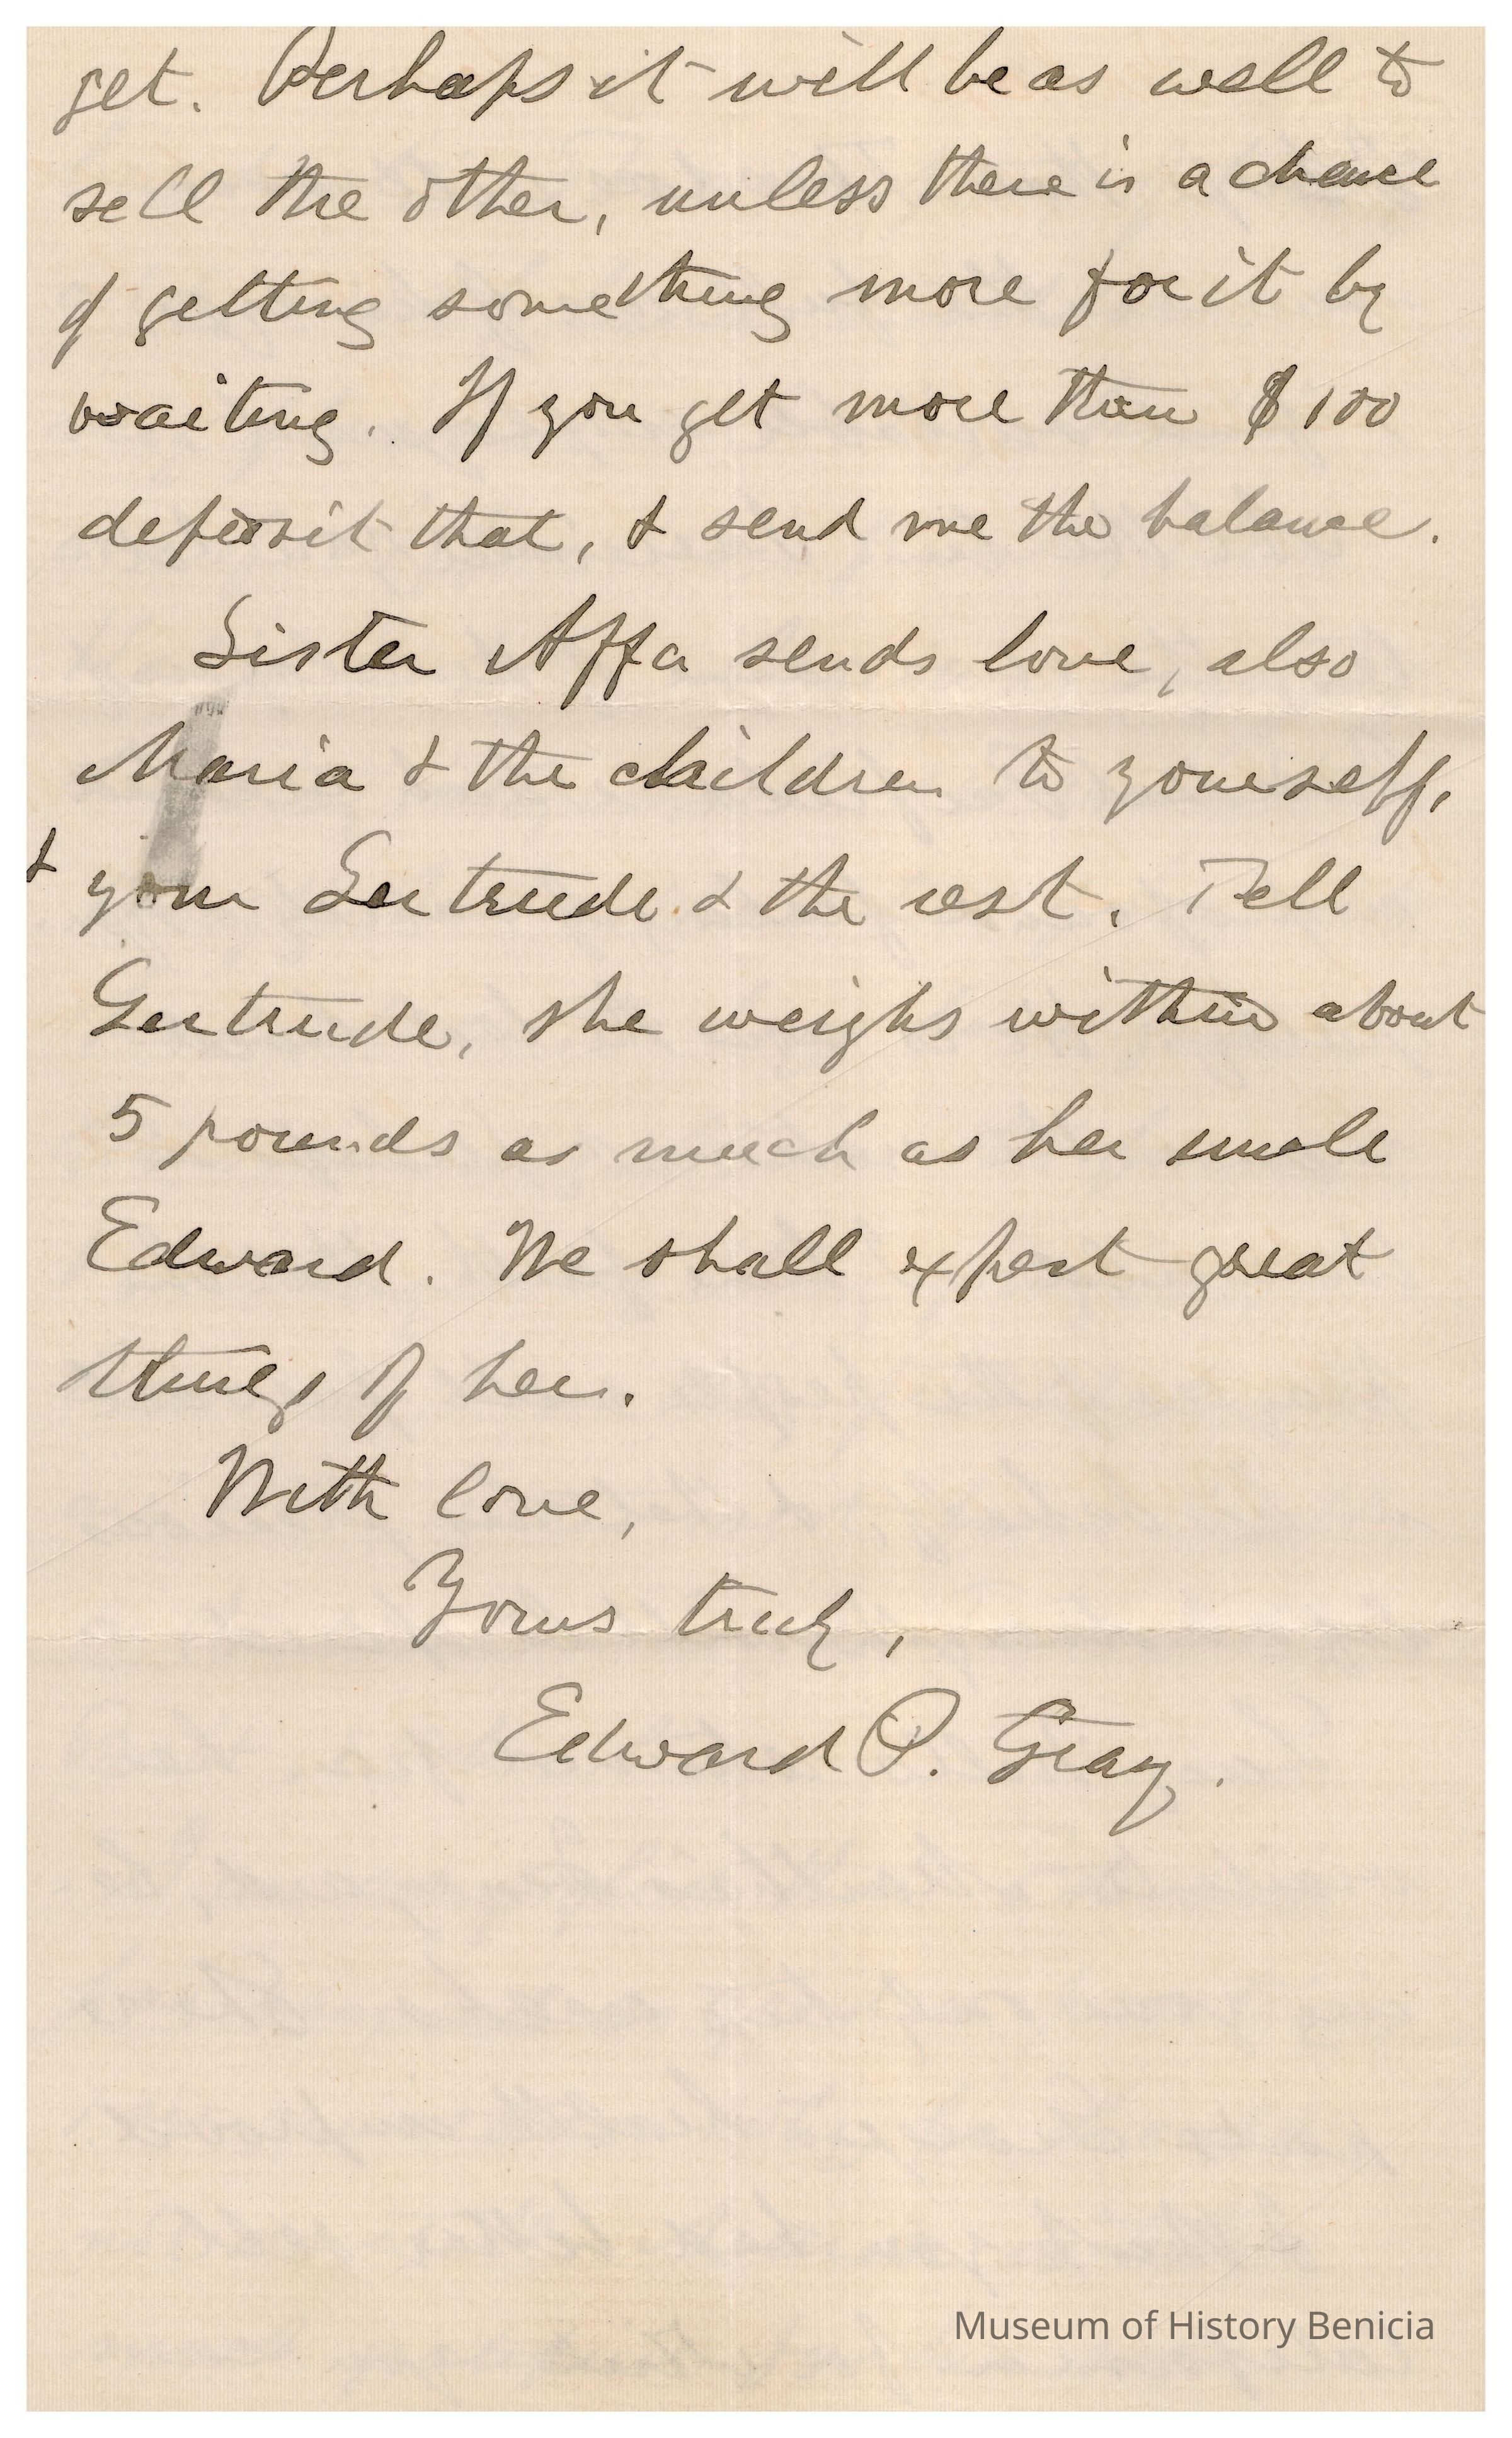 get. Perhaps it will be as well to
sell the other, unless there is a chance
of getting something more for it by
waiting. If you get more than $100
deposit that, & send me the balance.
Sister Affa sends love, also
Maria & the children to yourself,
& your Gertrude & the rest. Tell
Gertrude, she weighs within about
5 pounds as much as her uncle
Edward. We shall expect great
things of her.
With love,
Yours truly,
Edward P. Gray.
Museum of History Benicia